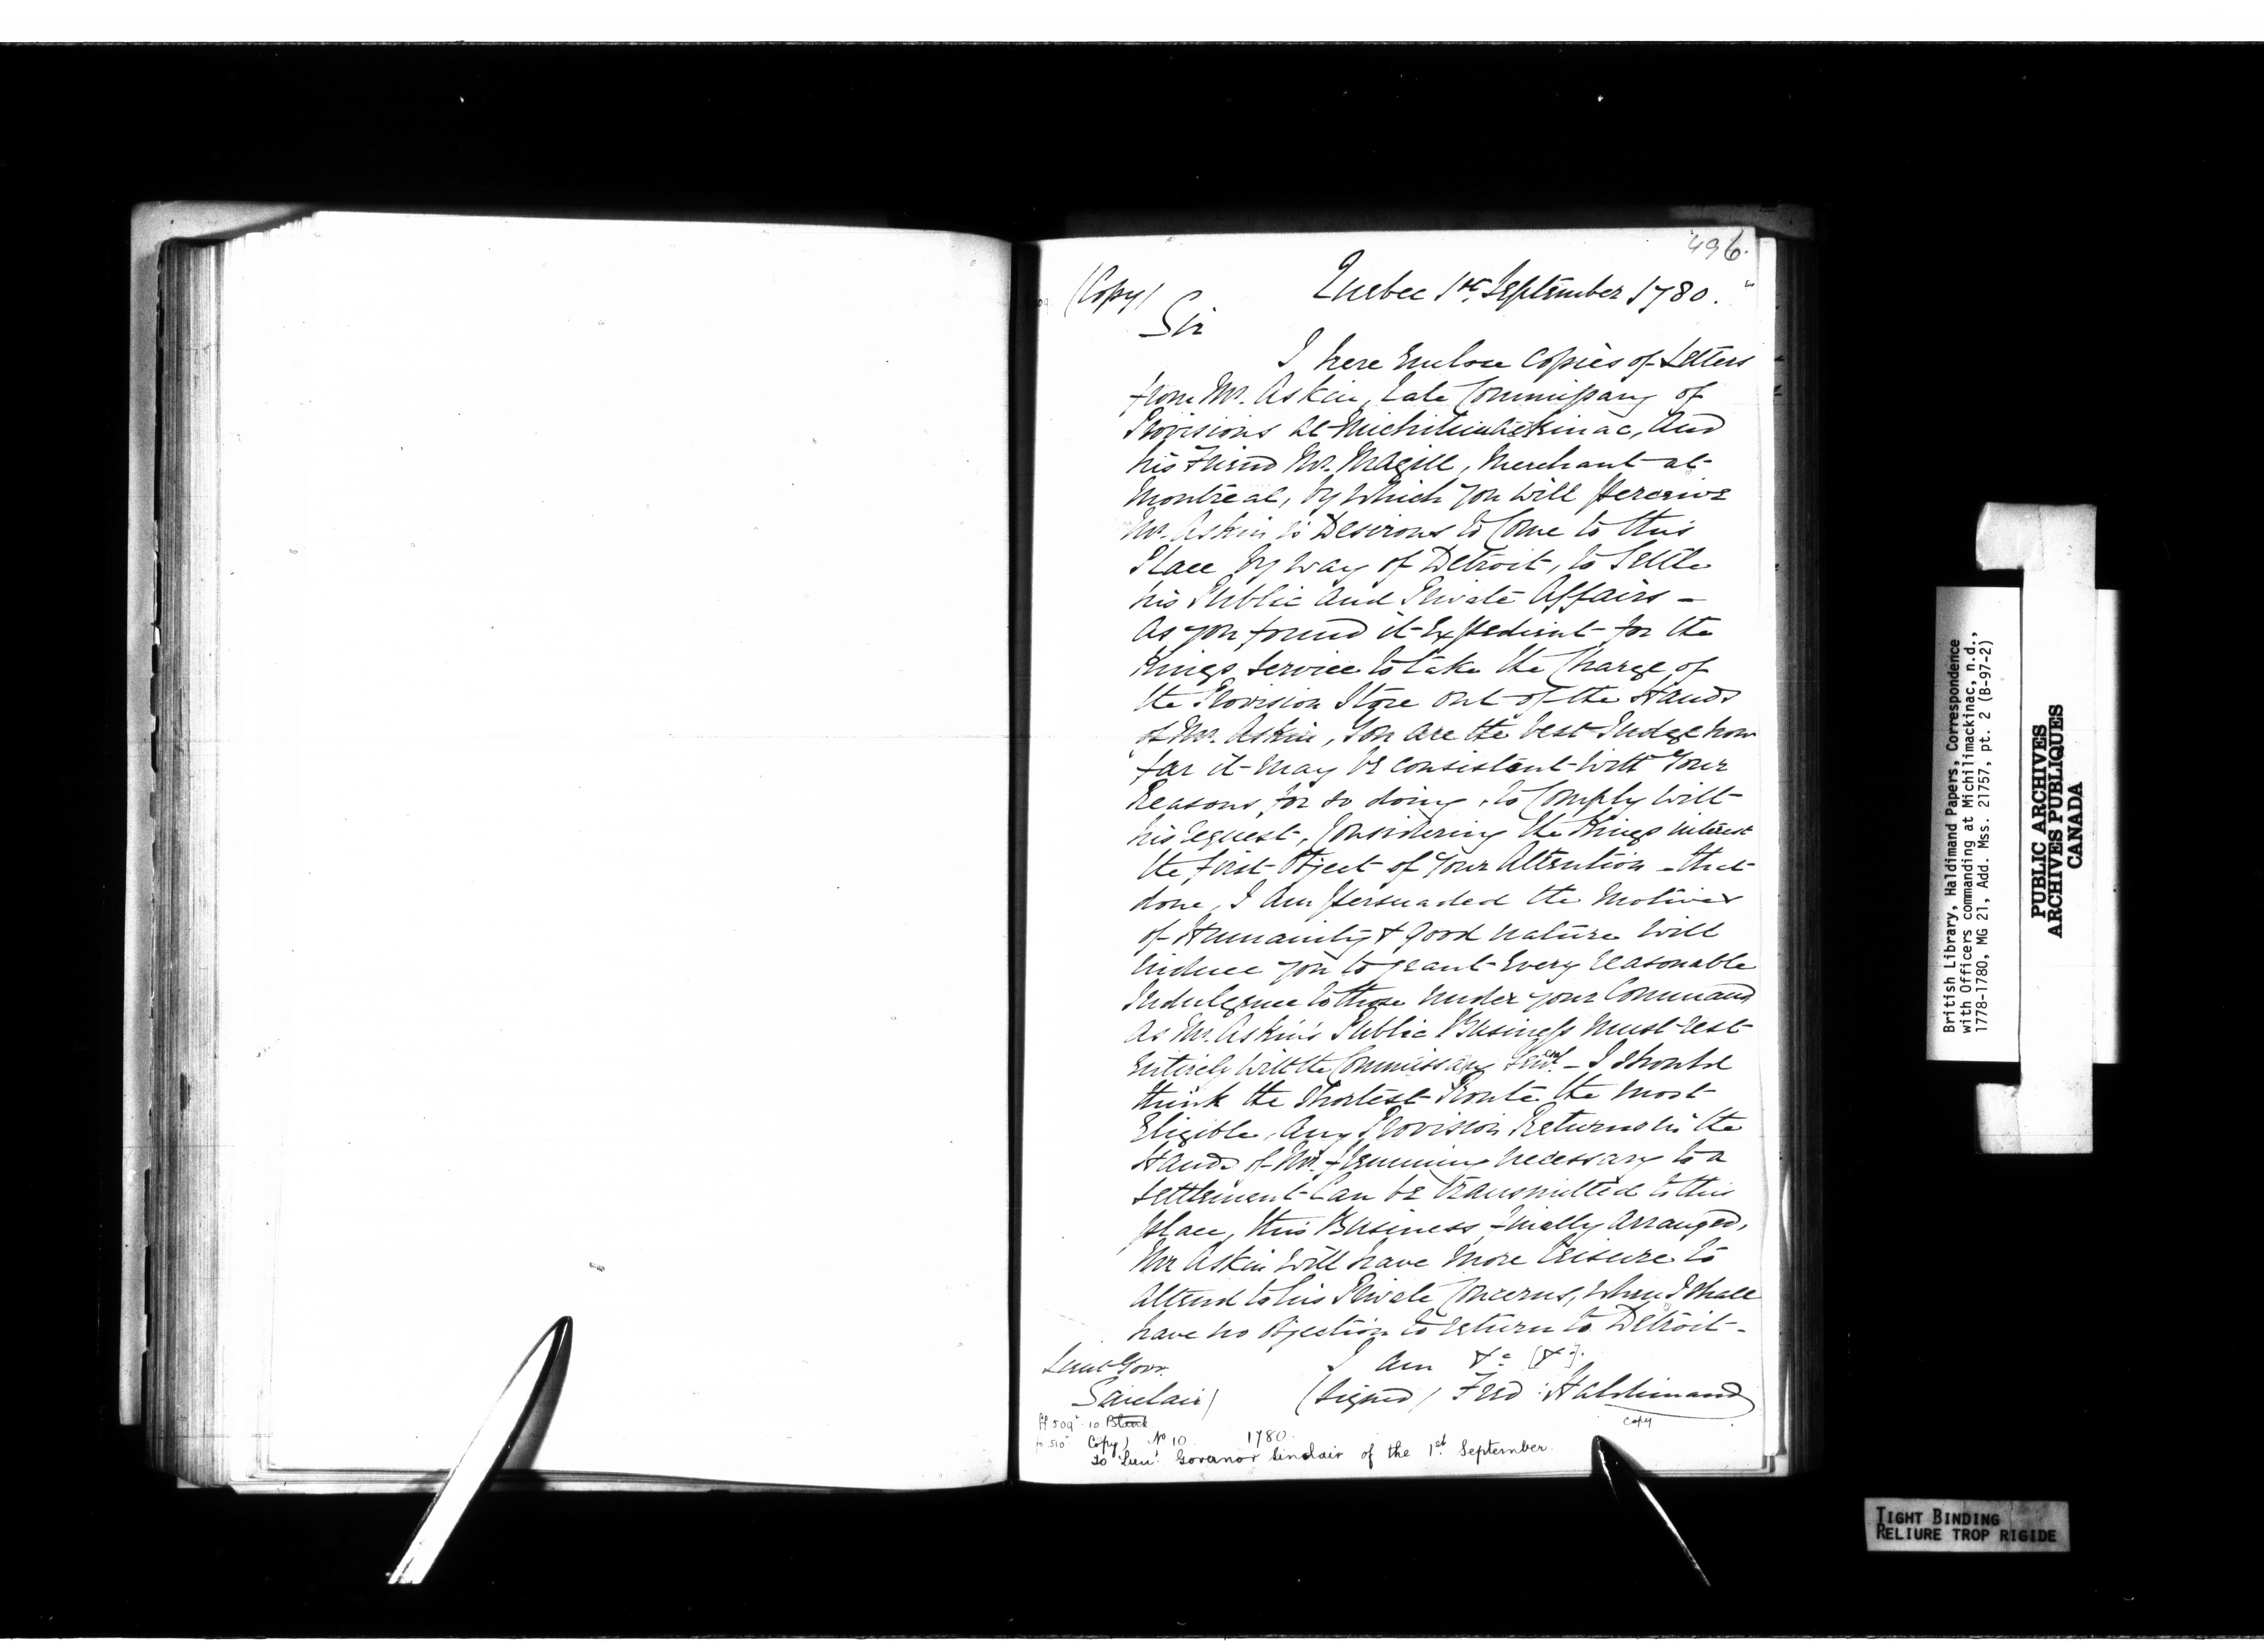 496.
(Copy) Quebec 1st. September 1780.
Sir
I here Enclose Copies of Letters
from Mr. Askin, Late Commissary of
Provisions at Michilimackinac, And
his Friend Mr. Magill, Merchant at
Montreal, by Which you will perceive
Mr. Askin is Desirous to Come to this
Place by way of Detroit, to Settle
his Public and Private Affairs —
As you found it Expedient for the
Kings Service to take the Charge of
the Provision Store out of the Hands
of Mr. Askin, You Are the best Judge how
far it may be consistent with Your
Reasons, for so doing, to Comply with
his request, Considering the Kings interest
the first Object of Your Attention – that
done, I Am persuaded the Motives
of Humanity & good nature will
induce you to grant Every reasonable
Indulgence to those under your Command
As Mr. Askin's Public Business must rest
Entirely with the Commissary Genl. – I should
think the Shortest Route the most
Eligible, Any Provision Returns in the
Hands of Mr. Flemming necessary to a
Settlement Can be transmitted to this
place, this Business finally Arranged,
Mr Askin will have more leisure to
Attend to his Private Concerns, when I shall
have no objection to return to Detroit –
I am &c [&c].
Lieut Govr.
Sinclair) (Signed) Fred: Haldimand
copy
ff 509v. 10 Blank
fo. 510v Copy) No 10 1780.
To Lieut Governor Sinclair of the 1st September.
British Library, Haldimand Papers, Correspondence
with Officers commanding at Michilimackinac, n.d.,
1778-1780, MG 21, Add. Mss. 21757, pt. 2 (B-97-2)
PUBLIC ARCHIVES
ARCHIVES PUBLIQUES
CANADA
TIGHT BINDING
RELIURE TROP RIGIDE